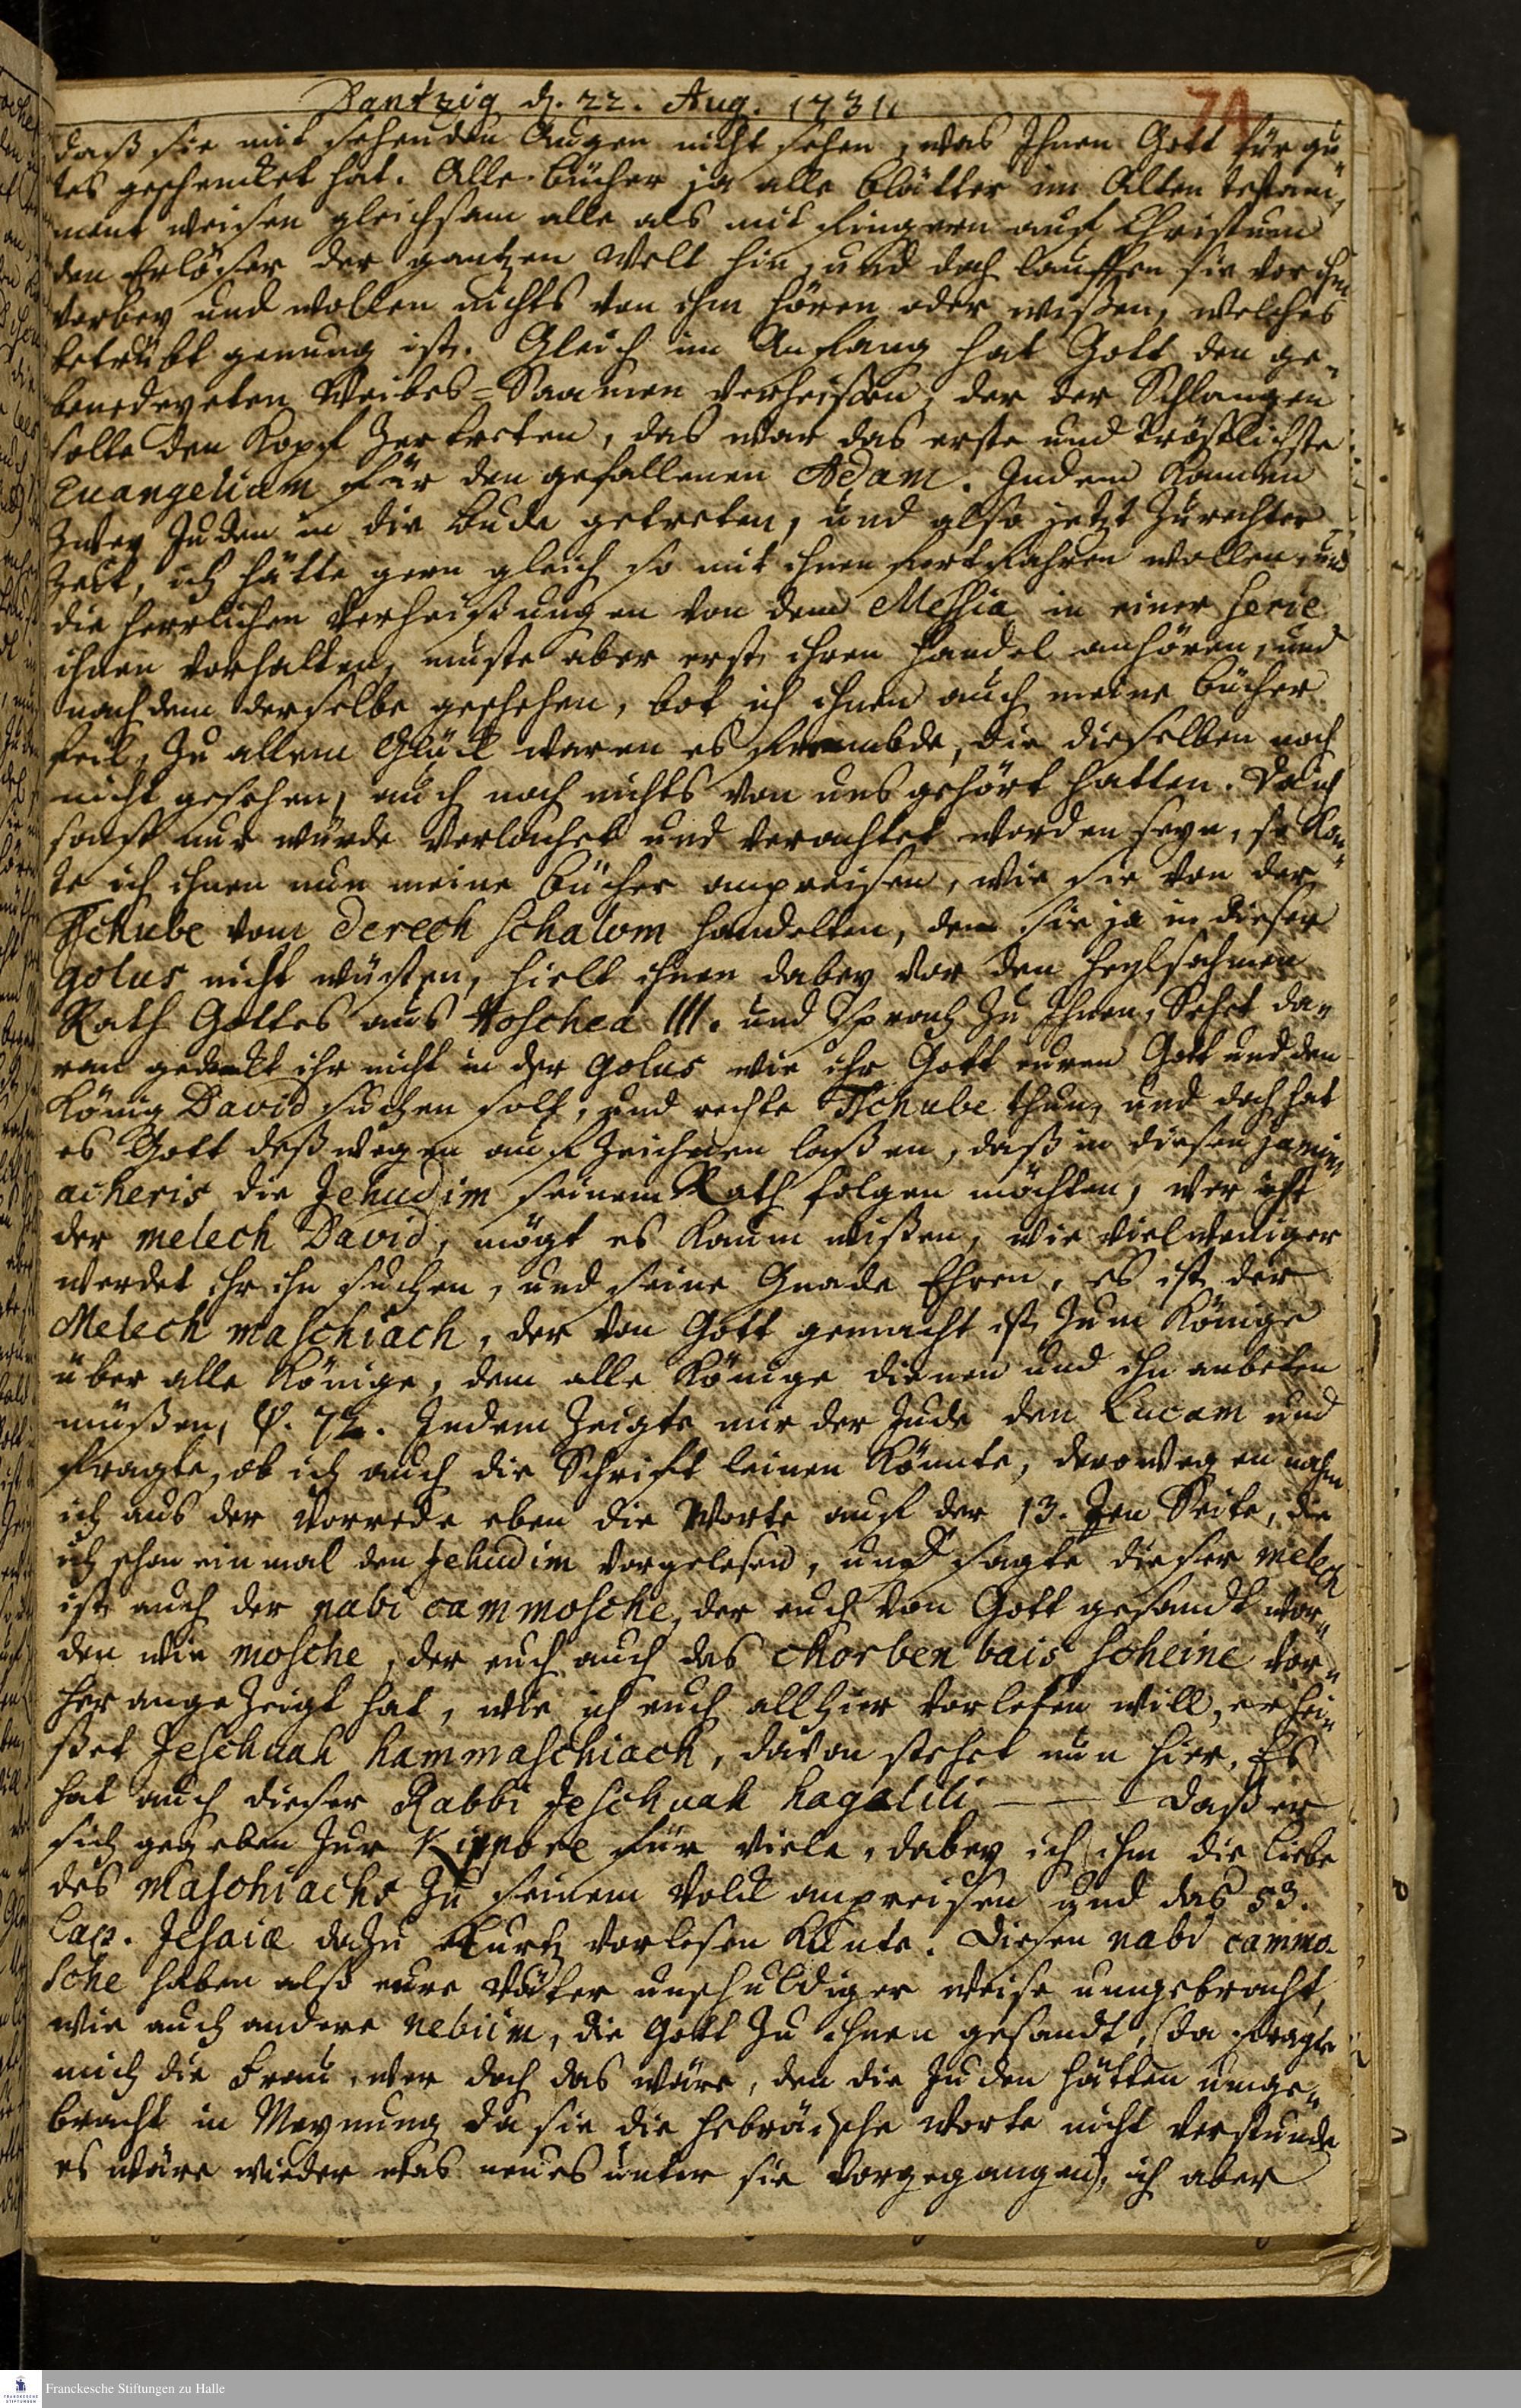 Dantzig d. 22. Aug. 1731.
74
daß sie mit sehenden Augen nicht sehen, was Ihnen Gott für gu-
tes geschencket hat. Alle bücher ja alle blätter im Alten testam-
ment weisen gleichsam alle als mit fingern auf Christum
den Erlöser der gantzen Welt hin, und doch lauffen sie vor ihm
vorbey und wollen nichts von ihm hören oder wißen, welches
betrübt genung ist. Gleich im Anfang hat Gott den ge-
benedeyeten Weibes-Saamen verheißen, der der Schlangen
solle den Kopf zertreten, das war das erste und tröstlichste
Euangelium für den gefallenen Adam. Indem kamen
zwey Juden in die bude getreten, und also jetzt zu rechter
zeit, ich hätte gern gleich so mit ihnen fortfahren wollen, und
die herrlichen Verheißungen von dem Messia in einer serie
ihnen vorhalten, muste aber erst ihren handel anhören, und
nachdem derselbe geschehen, bot ich ihnen auch meine bücher
feil, zu allem Glück waren es frembde, die dieselben noch
nicht gesehen, auch noch nichts von uns gehört hatten. Da ich
sonst nur würde verlachet und verachtet worden seyn, so kon-
te ich ihnen nun meine bücher anpreisen, wie sie von der
Tschube vom derech schalom handelten, den sie ja in dieser
golus nicht wüsten, hielt ihnen dabey vor den heylsahmen
Rath Gottes aus Hoschea III. und sprach zu Ihnen, Sehet da-
ran gedenckt ihr nicht in der golus wie ihr Gott euren Gott und den
König David suchen solt, und rechte Tschube thun, und doch hat
es Gott deßwegen aufzeichnen laßen, daß in diesen jamim
acheris die Jehudim seinem Rath folgen möchten, wer ist
der melech David, mögt es kaum wißen, wie viel weniger
werdet ihr ihn suchen, und seine Gnade Ehren, es ist der
Melech maschiach, der von Gott gemacht ist zum Könige
über alle Könige, dem alle Könige dienen und ihn anbeten
müßen, ψ. 72. Indem zeigte mir der Jude den Lucam und
fragte, ob ich auch die Schrift leinen könnte, deroweg en nahm
ich aus der Vorrede eben die Worte auf der 13. ten Seite, die
ich schon einmal den Jehudim vorgelesen, und sagte dieser melech
ist auch der nabi cammosche, der euch von Gott gesandt wor-
den wie mosche, der euch auch das Chorben bais scheine vor-
her angezeigt hat, wie ich euch allhier vorlesen will, er hei-
ßet Jeschuah hammaschiach, davon stehet nun hier, Es
hat auch dieser Rabbi Jeschuah hagalili — — daß er
sich gegeben zur Kippore für viele, dabey ich ihm die liebe
des Maschiachs zu seinem Volck anpreisen und das 53.
Cap. Jesaiæ dazu kurtz vorlesen kunte. Diesen nabi cammo-
sche haben also eure Väter unschuldiger weise umgebracht,
wie auch andere nebiim, die Gott zu ihnen gesandt, (da fragte
mich die frau, wer doch das wäre, den die Juden hätten umge-
bracht in Meynung da sie die hebräische worte nicht verstunde
es wäre wieder was neues unter sie vorgegangen), ich aber
Franckesche Stiftungen zu Halle